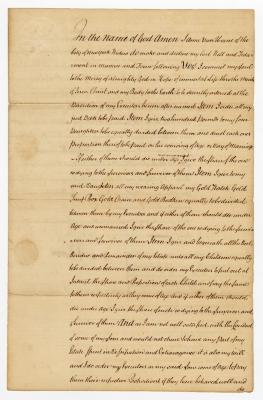 In the Name of God Amen I Anne van Horne of the
City of New York Widow do make and declare my Last Will and Testa
ment in manner and Form following Viz. I commit my soul
to the Mercy of Almighty God in Hopes of immortal life thro the Merits
of Jesus Christ and my Body to the Earth to be decently interred at the
Discretion of my Executors herein after named Item I order all my
just Debts to be paid Item I give two hundred Pounds to my four
Daughters to be equally divided between them and that each our
proportion thereof to be paid on her arriving of Age or Day of Marriage
if either of them should die under age I give the share of the one
so dying to the survivors and survivor of them Item I give to my
said Daughters all my wearing Apparel my Gold Watch Gold
Snuff Box Gold Chain and Gold Buttons equally to be divided
between them by my Executors and if either of them should die under
Age and unmarried I give the share of the one so dying to the survi
vors and survivor of them Item I give and bequeath all the Rest
Residue and Remainder of my Estate unto all my Children equally
to be divided between them and do order my Executors to put out at
Interest the Share and Proportion of each Child and pay the same
to them respectively as they come of age and if either of them should
die under Age I give the Share of such so dying to the Survivors and
Survivor of them And as I am not well satisfied with the Conduct
of some of my sons and would not chuse to have any Part of my
Estate spent in Dissipation and Extravagance it is also my Will
and I do order my Executors as my said four sons of age to pay
them their respective Portions if they have behaved well and